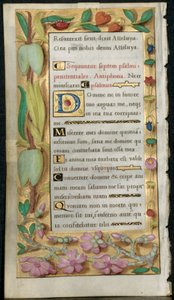 Resurrexit sicut dixit Alleluya.
Ora pro nobis deum Alleluya.
Sequuntur septem psalmi
penitentiales. Antiphona. Ne
reminiscaris. Psalmus
Domine ne in furore
tuo arguas me, neque
in ira tua corripias
me.
Miserere mei domine quoniam
infirmus sum, sana me domine
quoniam conturbata sunt
Et anima mea turbata est valde
sed tu domine
Convertere domine et eripe
animam meam salvum me fac propter
misericordiam tuam
Quoniam non est in morte qui
memor sit tui, in inferno autem quis
confitebitur tibi